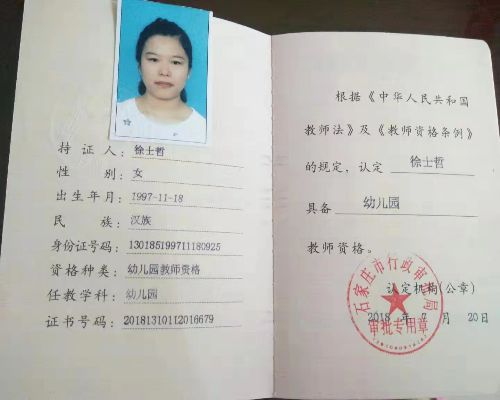 持证人：徐士哲
性别：女
出生年月：1997-11-18
民族：汉族
身份证号码：130185199711180925
资格种类：幼儿园教师资格
任教学科：幼儿园
证书号码：20181310112016679
根据《中华人民共和国
教师法》及《教师资格条例》
的规定，认定 徐士哲
具备 幼儿园
教师资格。
石家庄市行政审批局
认定机构(公章)
审批专用章
2018 年 7 月 20 日